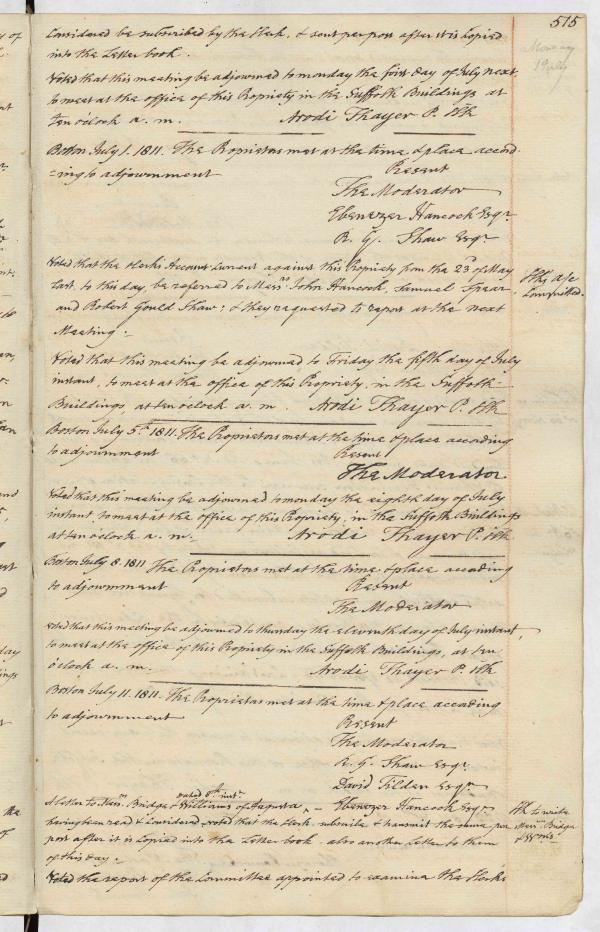 515
Considered be subscribed by the Clerk, & sent per post after it is Copied
into the Letter book.
Voted that this meeting be adjourned to monday the first day of July next,
to meet at the office of this Propriety in the Suffolk Buildings at
ten oclock a. m. Arodi Thayer P. Clk
Boston July 1. 1811. The Proprietors met at the time & place accord-
=ing to adjournment
Present
The Moderator
Ebenezer Hancock Esqr
R. G. Shaw Esqr
Voted that the Clerks Account Current against this Propriety from the 23d of May
last to this day, be referred to Messrs John Hancock, Samuel Spear
and Robert Gould Shaw; & they requested to report at the next
Meeting.
Clks a/c
Committed.
Voted that this meeting be adjourned to Friday the fifth day of July
instant, to meet at the office of this Propriety, in the Suffolk
Buildings, at ten oclock a. m. Arodi Thayer P. Clk
Boston July 5th 1811. The Proprietors met at the time & place according
to adjournment
Present
The Moderator
Voted that this meeting be adjourned to monday the eighth day of July
instant, to meet at the office of this Propriety, in the Suffolk Buildings
at ten oclock a. m. Arodi Thayer P. Clk
Boston July 8. 1811 The Proprietors met at the time & place according
to adjournment
Present
The Moderator
Voted that this meeting be adjourned to thursday the eleventh day of July instant,
to meet at the office of this Propriety in the Suffolk Buildings, at ten
oclock a. m. Arodi Thayer P. Clk
Boston July 11. 1811. The Proprietors met at the time & place according
to adjournment
Present
The Moderator
R. G. Shaw Esqr
David Tilden Esqr
Ebenezer Hancock Esqr
dated 8th inst.
A Letter to Messrs Bridge & Williams of Augusta,
having been read & Considered, voted that the Clerk subscribe & transmit the same per
post after it is Copied into the Letter book. also another Letter to them
of this day.
Clk to write
Messrs Bridge
& Wms
Voted the report of the Committee appointed to examine the Clerks